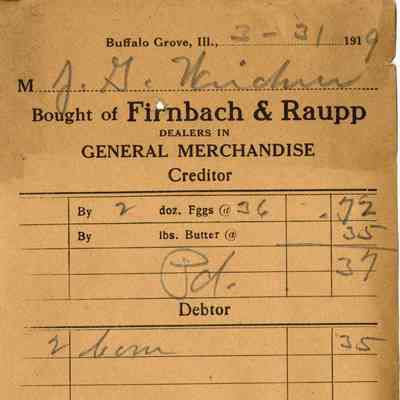 Buffalo Grove, Ill., 3-31 1919
M J. G.
Bought of Firnbach & Raupp
DEALERS IN
GENERAL MERCHANDISE
Creditor
By 2 doz. Eggs @ 36 .72
By lbs. Butter @ 35
Pd. 37
Debtor
2 corn 35